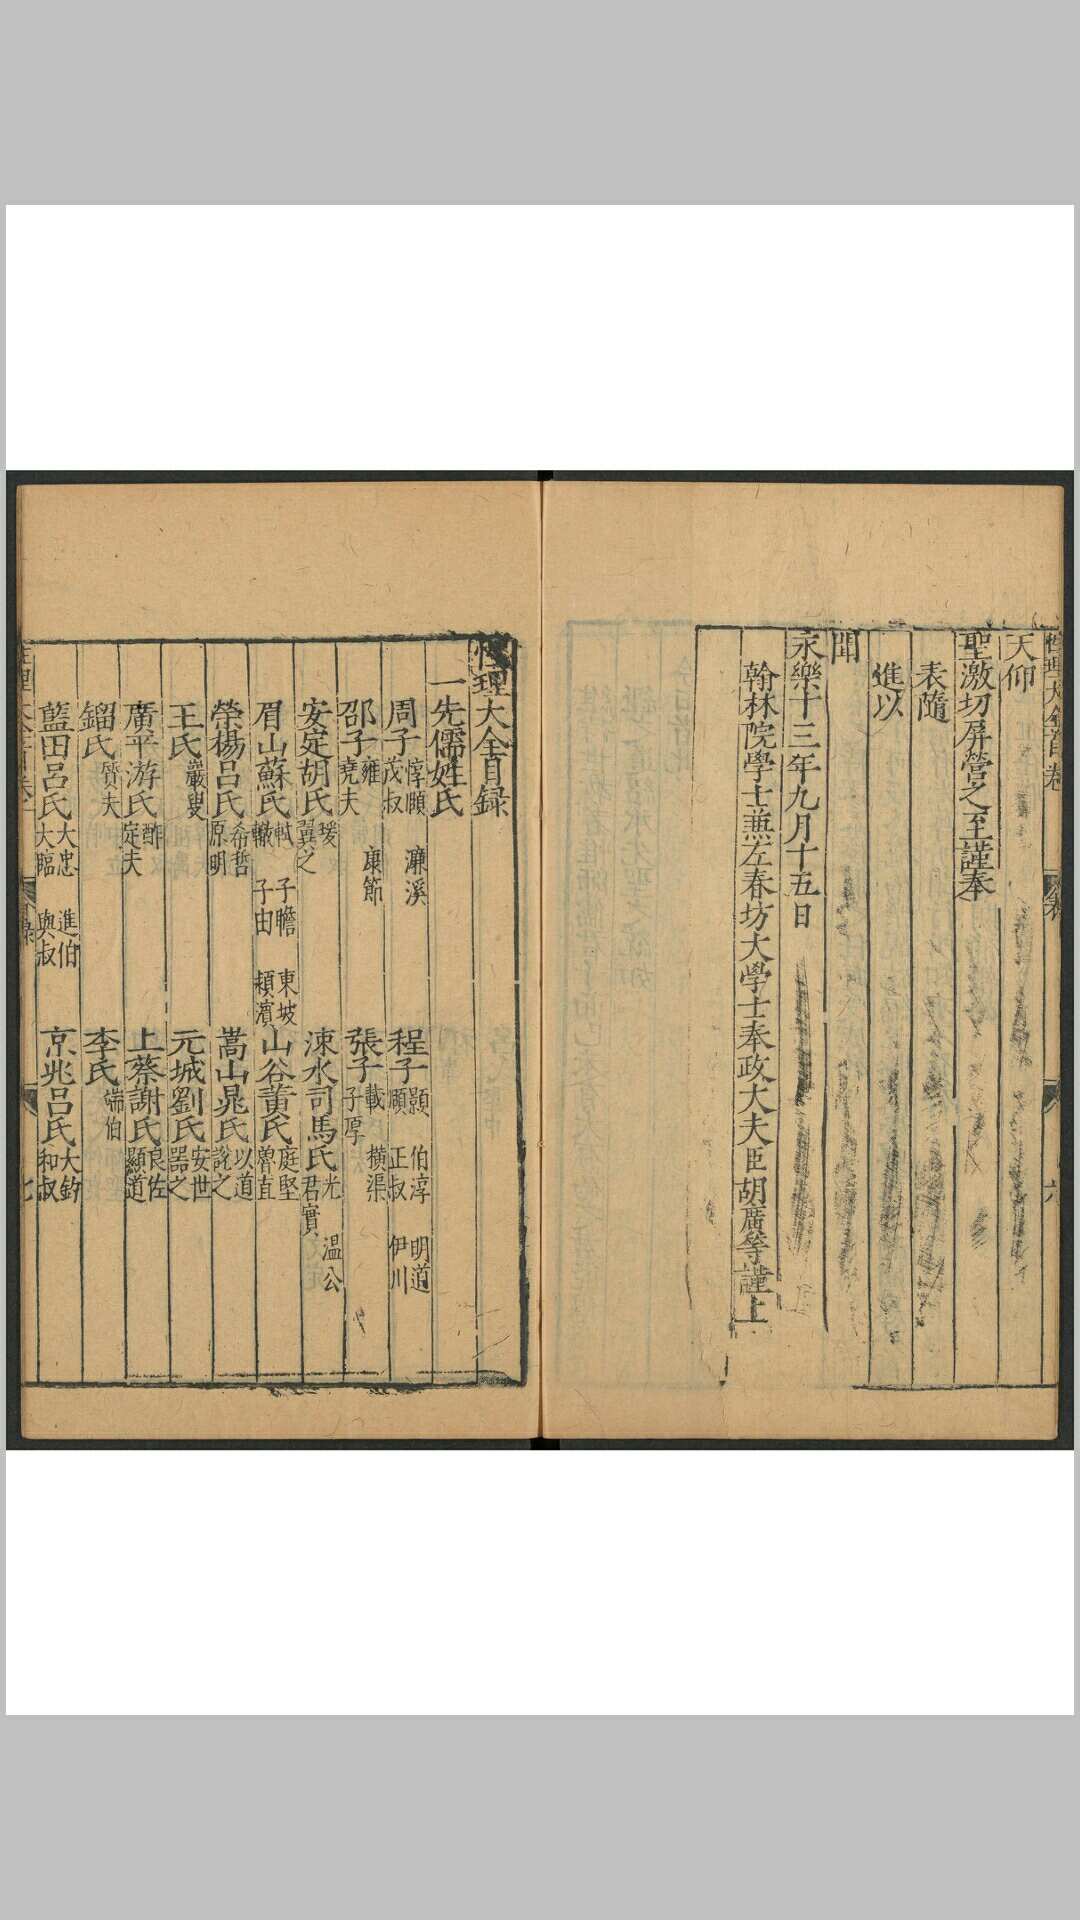 天仰
聖激切屏營之至謹奉
表隨
進以
聞
永樂十三年九月十五日
翰林院學士兼左春坊大學士奉政大夫臣胡廣等謹上
性理大全目録
一先儒姓氏
周子 惇頤 茂叔 濂溪 程子 顥 伯淳 明道 頤 正叔 伊川
邵子 雍 堯夫 康節 張子 載 子厚 橫渠
安定胡氏 瑗 翼之 涑水司馬氏 光 君實 温公
眉山蘇氏 軾 子瞻 東坡 轍 子由 頴濱 山谷黄氏 庭堅 魯直
榮楊吕氏 希哲 原明 嵩山晁氏 以道 說之
王氏 巖叟 元城劉氏 安世 器之
廣平游氏 酢 定夫 上蔡謝氏 良佐 顯道
鎦氏 質夫 李氏 端伯
藍田吕氏 大忠 進伯 大臨 與叔 京兆吕氏 大鈞 和叔